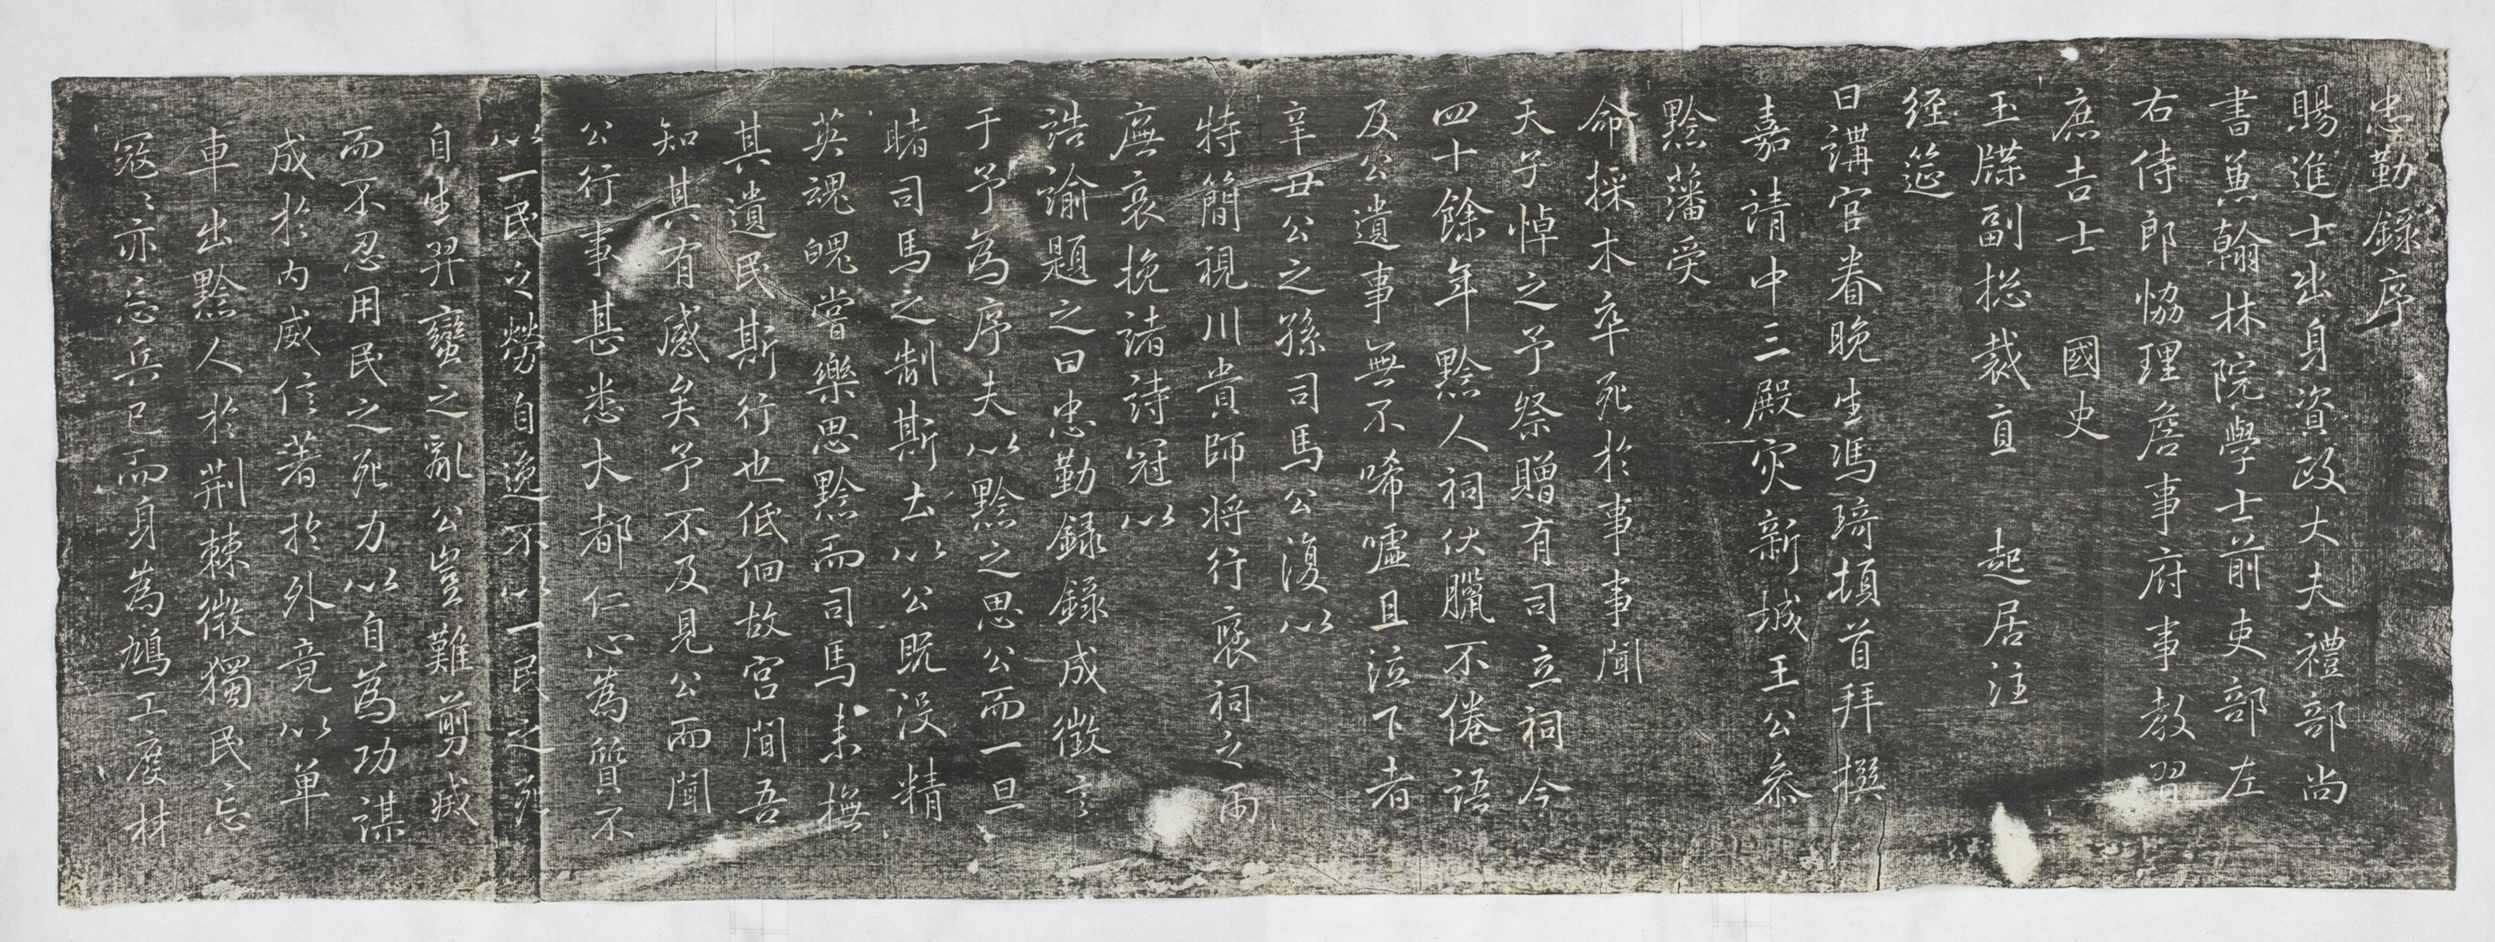 忠勤錄序
賜進士出身資政大夫禮部尚
書兼翰林院學士前吏部左
右侍郎協理詹事府事教習
庶吉士 國史
玉牒副總裁直 起居注
經筵
日講官眷晚生馮琦頓首拜撰
嘉靖中三殿灾新城王公叅
黔藩受
命採木卒死於事事聞
天子悼之予祭贈有司立祠今
四十餘年黔人祠伏臘不倦語
及公遺事無不唏噓且泣下者
辛丑公之孫司馬公復以
特簡視川貴師將行裒祠之兩
廡哀挽諸詩冠以
誥諭題之曰忠勤錄錄成徵言
于予為序夫以黔之思公而一旦
睹司馬之制斯土以公既沒精
英魂魄當樂思黔而司馬来撫
其遺民斯行也低佪故宮間吾
知其有感矣予不及見公而聞
公行事甚悉大都仁心為質不
以一民之勞自逸不以一民之死
自生羿蠻之亂公豈難剪滅
而不忍用民之死力以自為功謀
成於內威信著於外竟以单
車出黔人於荆棘徼獨民忘
寇寇亦忘兵已而身為鳩工度材